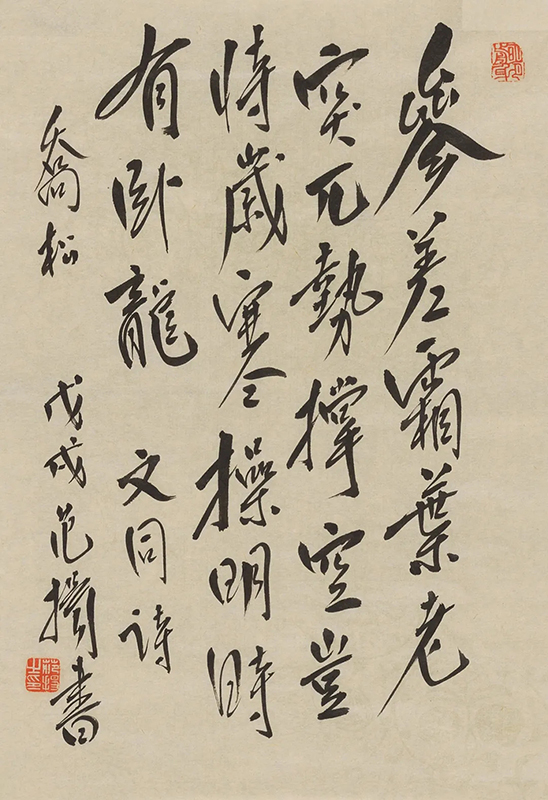 參差霜葉老
突兀勢撐空豈
恃歲寒操明時
有臥龍 文同詩
喬松 戊戌范揚書
范揚之印